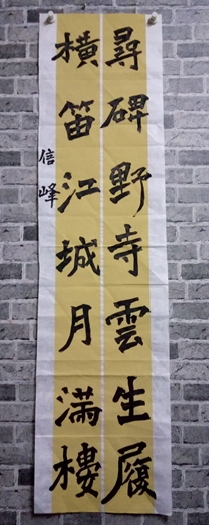 尋碑野寺雲生履
橫笛江城月滿樓
信峰